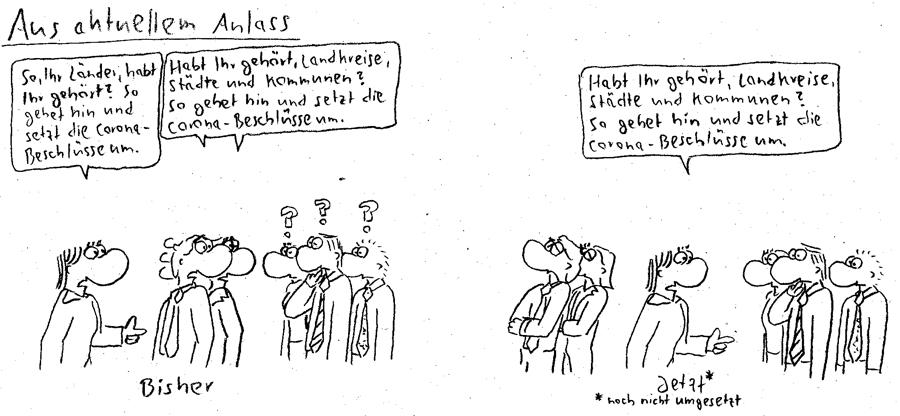 Aus aktuellem Anlass
So, Ihr Länder, habt
Ihr gehört? So
gehet hin und
setzt die Corona-
Beschlüsse um.
Habt Ihr gehört, Landkreise,
Städte und Kommunen?
So gehet hin und setzt die
Corona-Beschlüsse um.
? ? ?
Bisher
Habt Ihr gehört, Landkreise,
Städte und Kommunen?
So gehet hin und setzt die
Corona-Beschlüsse um.
Jetzt*
*noch nicht umgesetzt